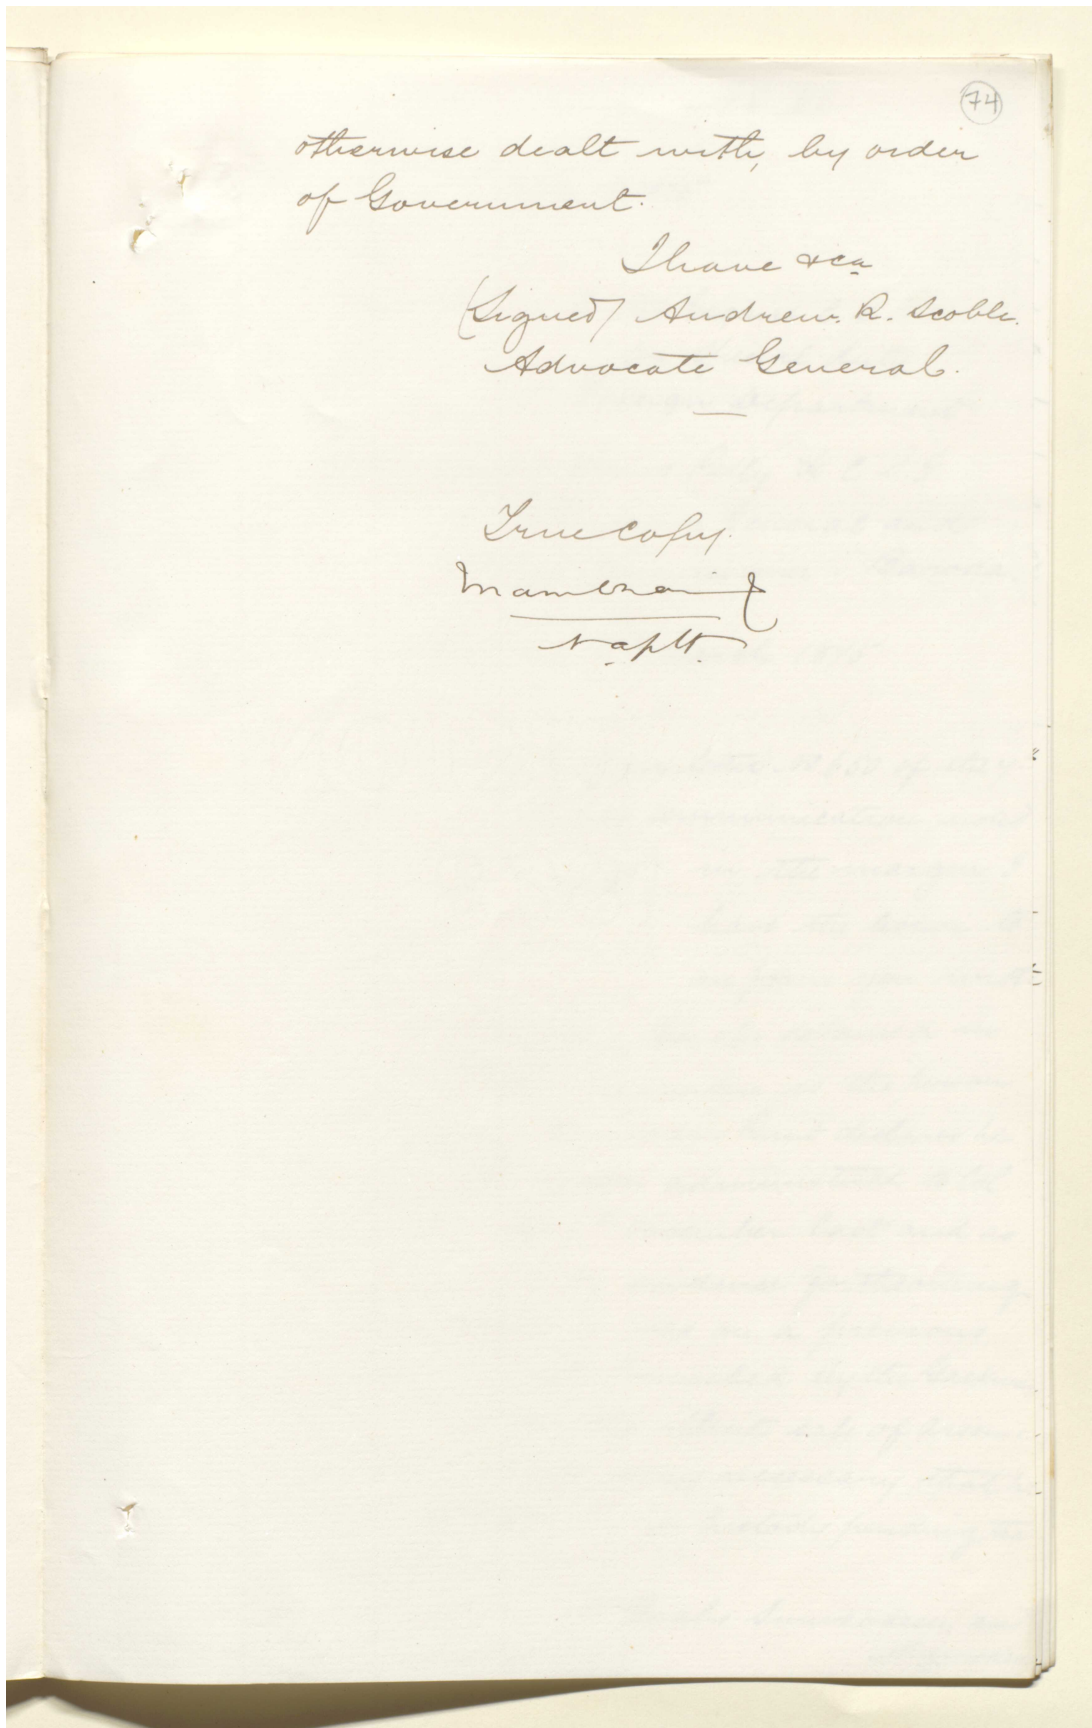 74
otherwise dealt with, by order
of Government.
I have &ca
(Signed) Andrew. R. Scoble.
Advocate General.
True copy.